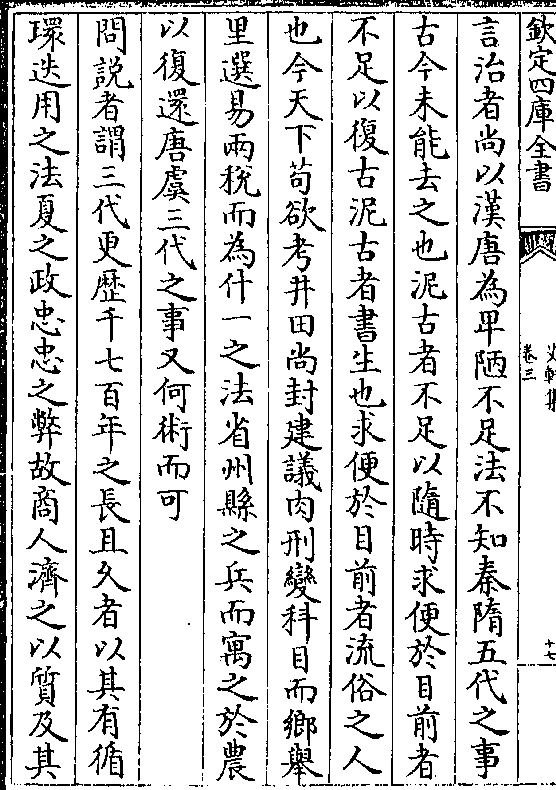 欽定四庫全書
卷三
十七
言治者尚以漢唐為卑陋不足法不知秦隋五代之事
古今未能去之也泥古者不足以隨時求便於目前者
不足以復古泥古者書生也求便於目前者流俗之人
也今天下苟欲考井田尚封建議肉刑變科目而鄉舉
里選易兩稅而為什一之法省州縣之兵而寓之於農
以復還唐虞三代之事又何術而可
問説者謂三代更歴千七百年之長且久者以其有循
環迭用之法夏之政忠忠之弊故商人濟之以質及其